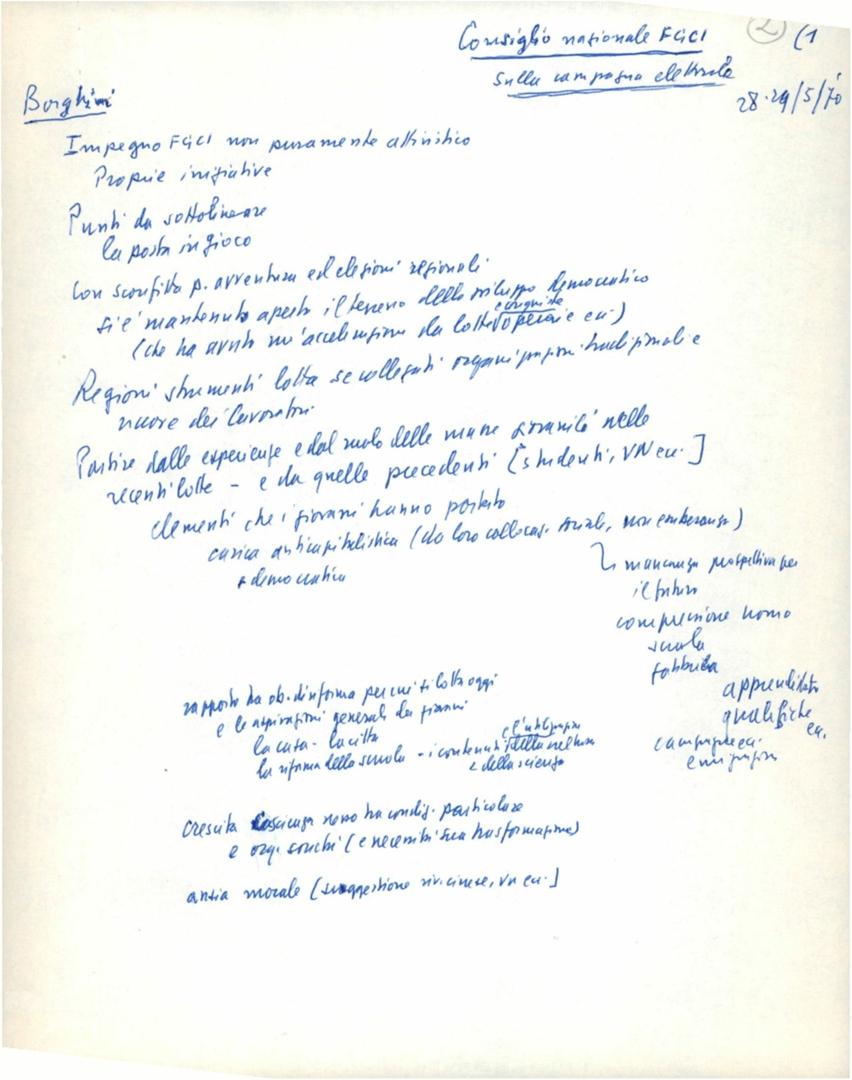 Consiglio nazionale FGCI
(2) (1
sulla campagna elettorale
28-29/5/70
Borghini
Impegno FGCI non puramente attivistico
Proprie iniziative
Punti da sottolineare
la posta in gioco
Con sconfitta p. avventura ed elezioni regionali
si è mantenuto aperto il terreno dello sviluppo democratico
(che ha avuto un'accelerazione da lotte operaie ec.)
e conquiste
Regioni strumenti lotta se collegati organizzazioni tradizionali e
nuove dei lavoratori
Partire dalle esperienze e dal ruolo delle masse giovanili nelle
recenti lotte - e da quelle precedenti [studenti, VN ec.]
elementi che i giovani hanno portato
carica anticapitalistica (da loro collocaz. sociale, non esuberanza)
e democratica
mancanza prospettiva per
il futuro
compressione uomo
scuola
fabbrica
apprendistato
qualifiche
ec.
campagne ec.
emigrazione
rapporto tra ob. di riforma per cui si lotta oggi
e le aspirazioni generali dei giovani
la casa - la città
la riforma della scuola - i contenuti della cultura
e l'utilizzazione
e della scienza
crescita coscienza nesso tra condiz. particolare
e org. società (e necessità sua trasformazione)
ansia morale [suggestione riv. cinese, VN ec.]